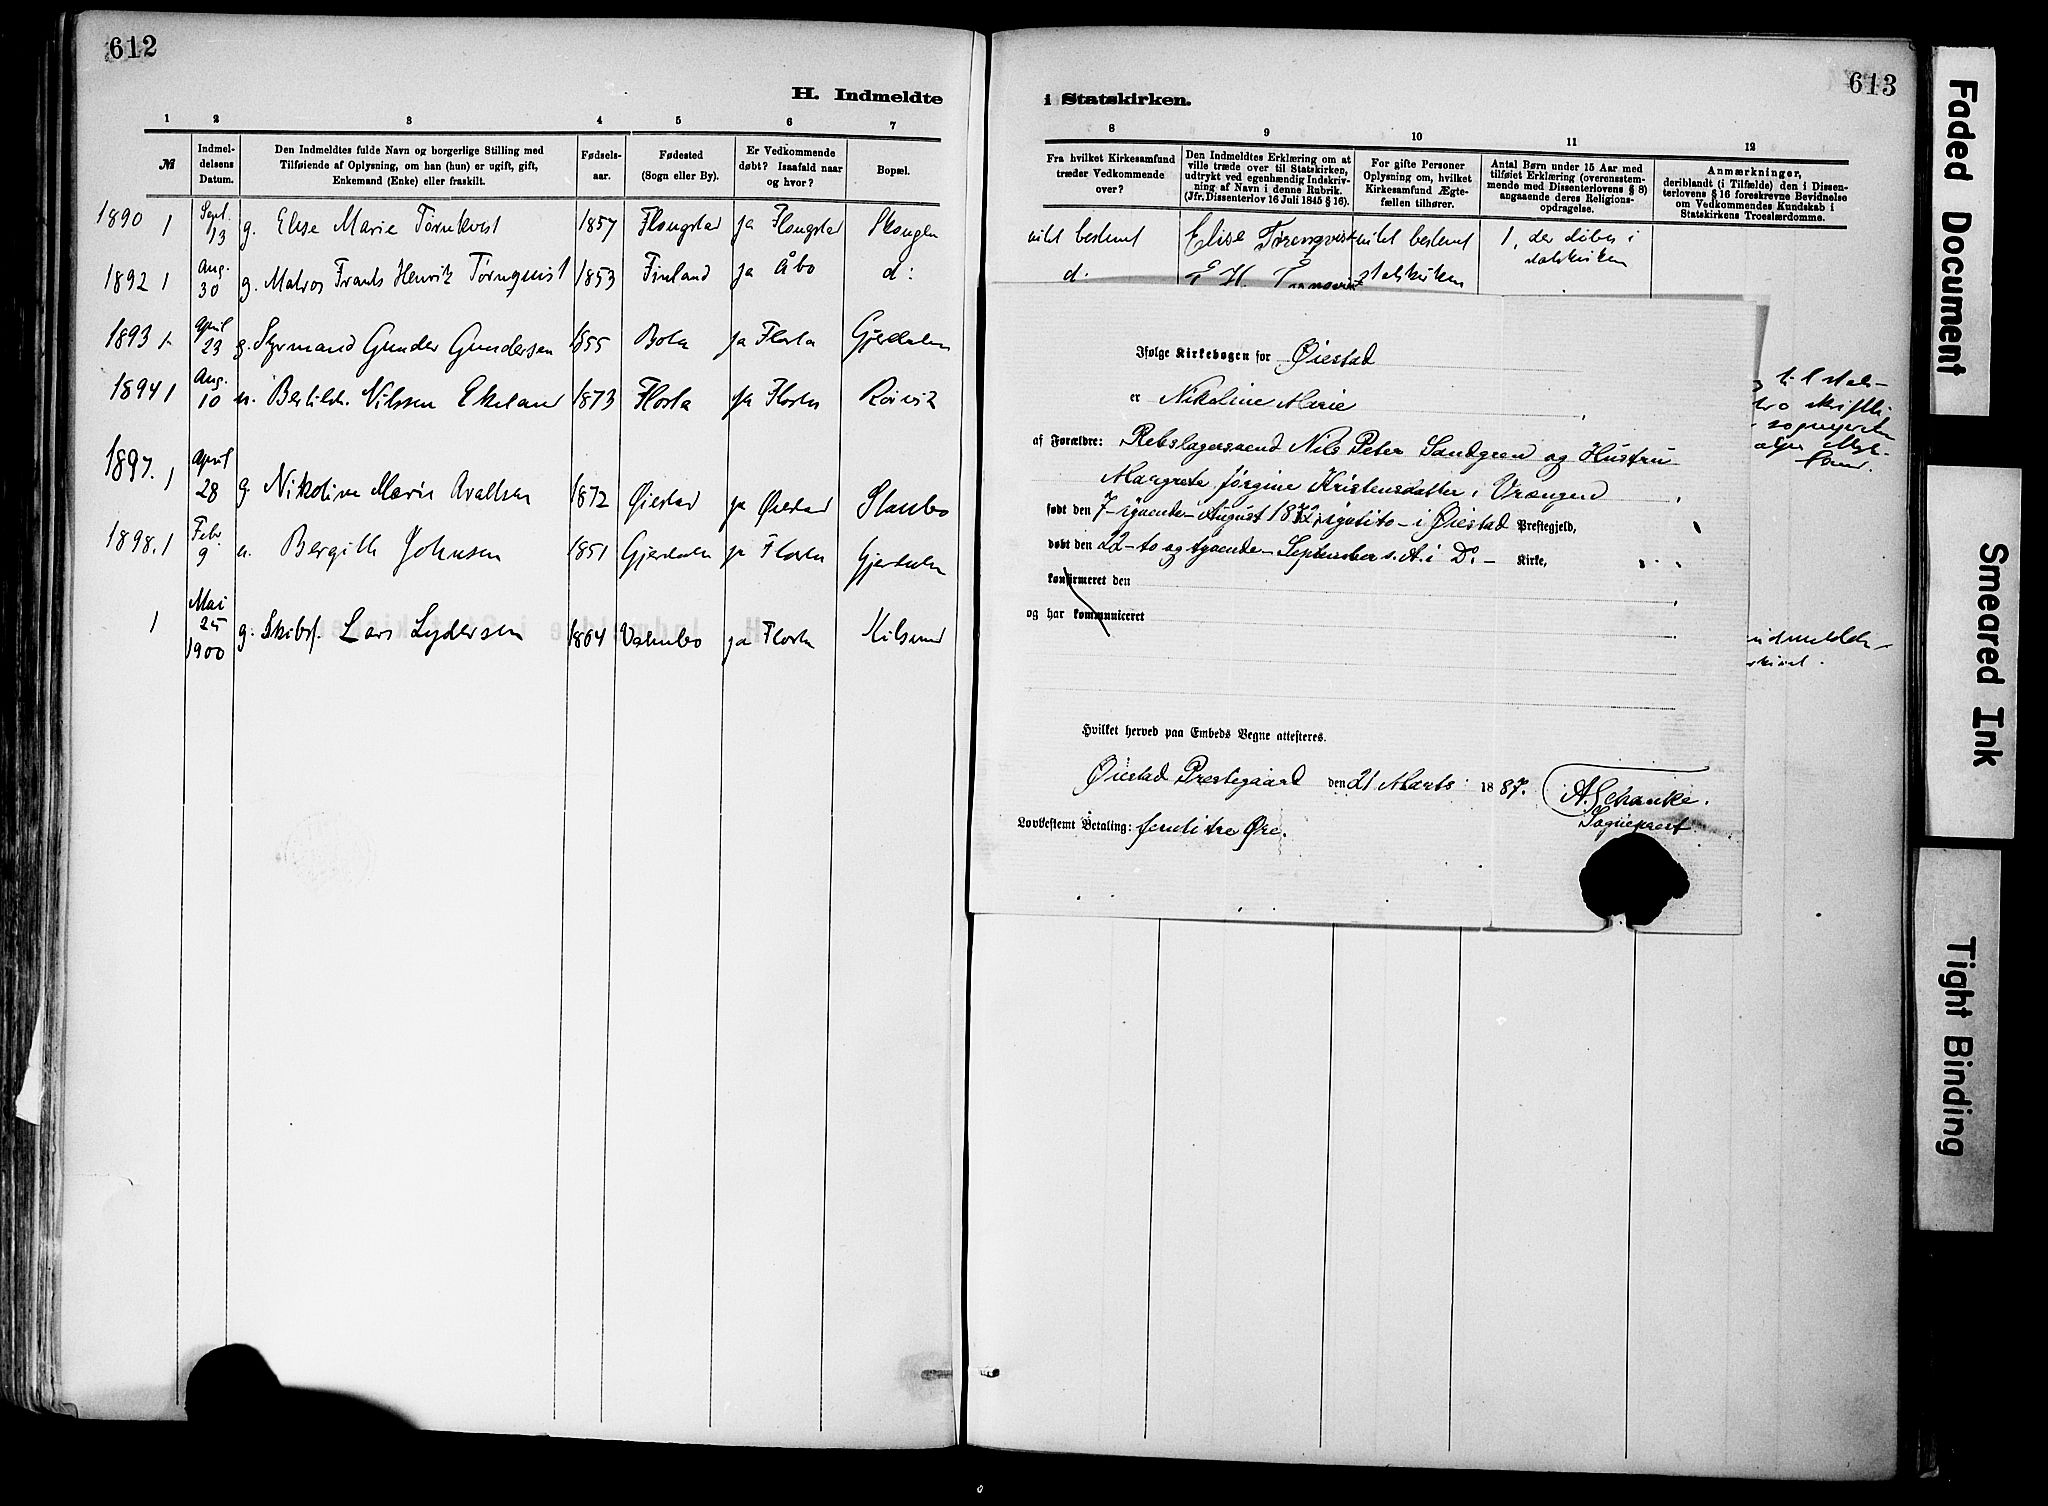 612
H. Indmeldte
1 2 3 4 5 6 7
№
Indmel-
delsens
Datum.
Den Indmeldtes fulde Navn og borgerlige Stilling med
Tilføiende af Oplysning, om han (hun) er ugift, gift,
Enkemand (Enke) eller fraskilt.
Fødsels-
aar.
Fødested
(Sogn eller By).
Er Vedkommende
døbt? Isaafald naar
og hvor?
Bopæl.
1890 1 Sept. 13 g. Elise Marie Törnkvist 1857 Flangstad ja Flangstad
1892 1 Aug. 30 g. Matros Frants Henrik Törnquist 1853 Finland ja Åbo d:
1893 1 April 23 g. Styrmand Gunder Gundersen 1855 Bota ja Flosta Gjerdalen
1894 1 Aug. 10 u. Bertilde Nilssen Ekeland 1873 Flosta ja Flosta Röivik
1897. 1 April 28 g. Nikoline Marie Axelsen 1872 Øiestad ja Øiestad Staubo
1898. 1 Febr 9 u. Bergith Johnsen 1851 Gjerdalen ja Flosta Gjerdalen
1 Mai 25 1900 g. Skibsf. Lars Lydersen 1864 ja Flosta Kilsund
613
i Statskirken.
8 9 10 11 12
Fra hvilket Kirkesamfund
træder Vedkommende
over?
Den Indmeldtes Erklæring om at
ville træde over til Statskirken,
udtrykt ved egenhændig Indskriv-
ning af Navn i denne Rubrik.
(Jfr. Dissenterlov 16 Juli 1845 § 16).
For gifte Personer
Oplysning om, hvilket
Kirkesamfund Ægte-
fællen tilhører.
Antal Børn under 15 Aar med
tilføiet Erklæring (overensstem-
mende med Dissenterlovens § 8)
angaaende deres Religions-
opdragelse.
Anmærkninger,
deriblandt (i Tilfælde) den i Dissen-
terlovens § 16 foreskrevne Bevidnelse
om Vedkommendes Kundskab i
Statskirkens Troeslærdomme.
uvist bestemt Elise Törenqvist uvist bestemt 1, der döbes i
statskirken
d: statskirken
Ifølge Kirkebogen for Øiestad
er Nikoline Marie
af Forældre: Rebslagersvend Nils Peter Sandgren og Hustru
Margrete Jörgine Kristensdatter i Vrængen
født den 7-syvende-August 1872, sytito- i Øiestad Prestegjeld,
døbt den 22-to og tyvende-September s. A. i Do. - Kirke,
konfirmeret den
og har kommuniceret
Hvilket herved paa Embeds Vegne attesteres.
Øiestad Prestegaard den 21 Marts 1887. A. Schanke.
Sogneprest
Lovbestemt Betaling: femti tre Øre.
til stats-
skriftli
indmeldelse
Faded Document
Smeared Ink
Tight Binding